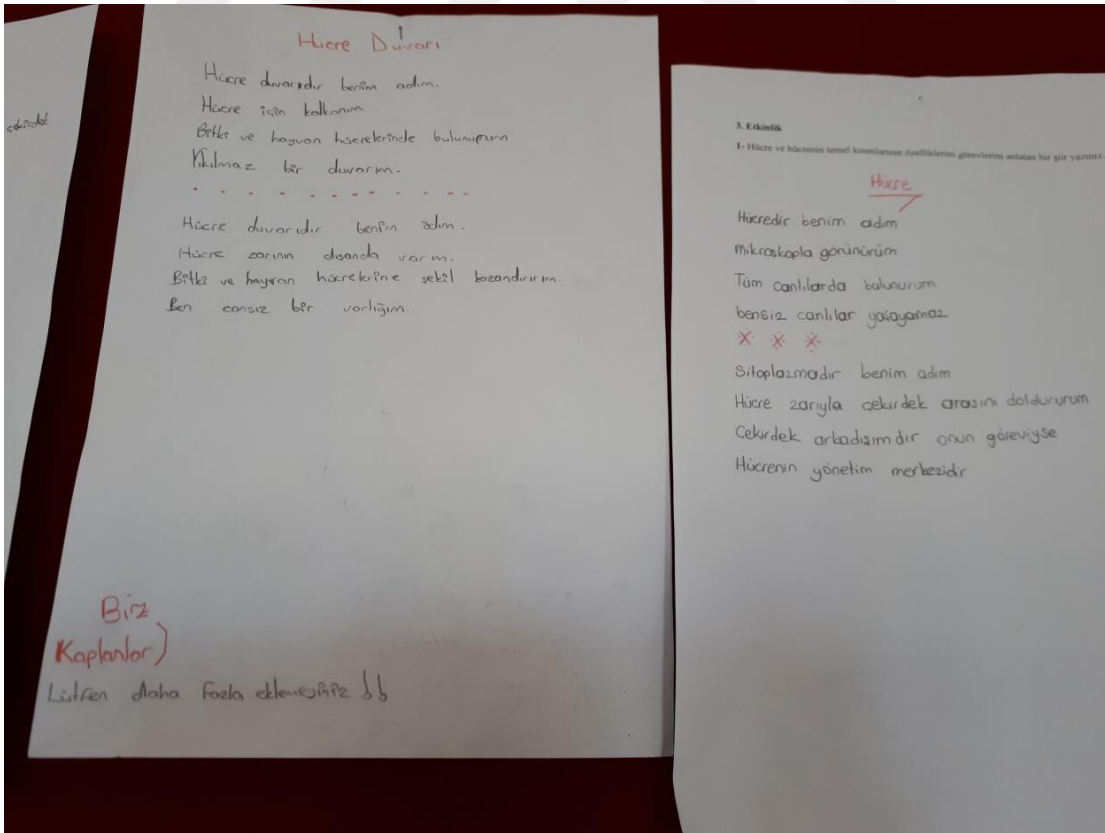 çekirdek
Hücre Duvarı
Hücre duvarıdır benim adım.
Hücre için kalkanım
Bitki ve hayvan hücrelerinde bulunuyorum
Yıkılmaz bir duvarım.
Hücre duvarıdır benim adım.
Hücre zarının dışarıda varım.
Bitki ve hayvan hücrelerine şekil kazandırırım
Ben cansız bir varlığım.
Biz
Kaplanlar)
Lütfen daha fazla eklemeyiniz !!
3. Etkinlik
1- Hücre ve hücrenin temel kısımlarının özelliklerini görevlerini anlatan bir şiir yazınız.
Hücre
Hücredir benim adım
mikroskopla görünürüm
Tüm canlılarda bulunurum
bensiz canlılar yaşayamaz
Sitoplazmadır benim adım
Hücre zarıyla çekirdek arasını doldururum
Çekirdek arkadışımdır onun göreviyse
Hücrenin yönetim merkezidir